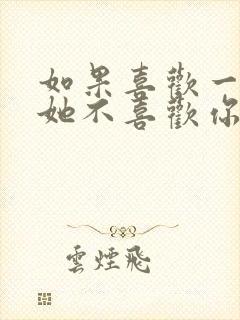 如果喜歡一
她不喜歡你
雲煙飛